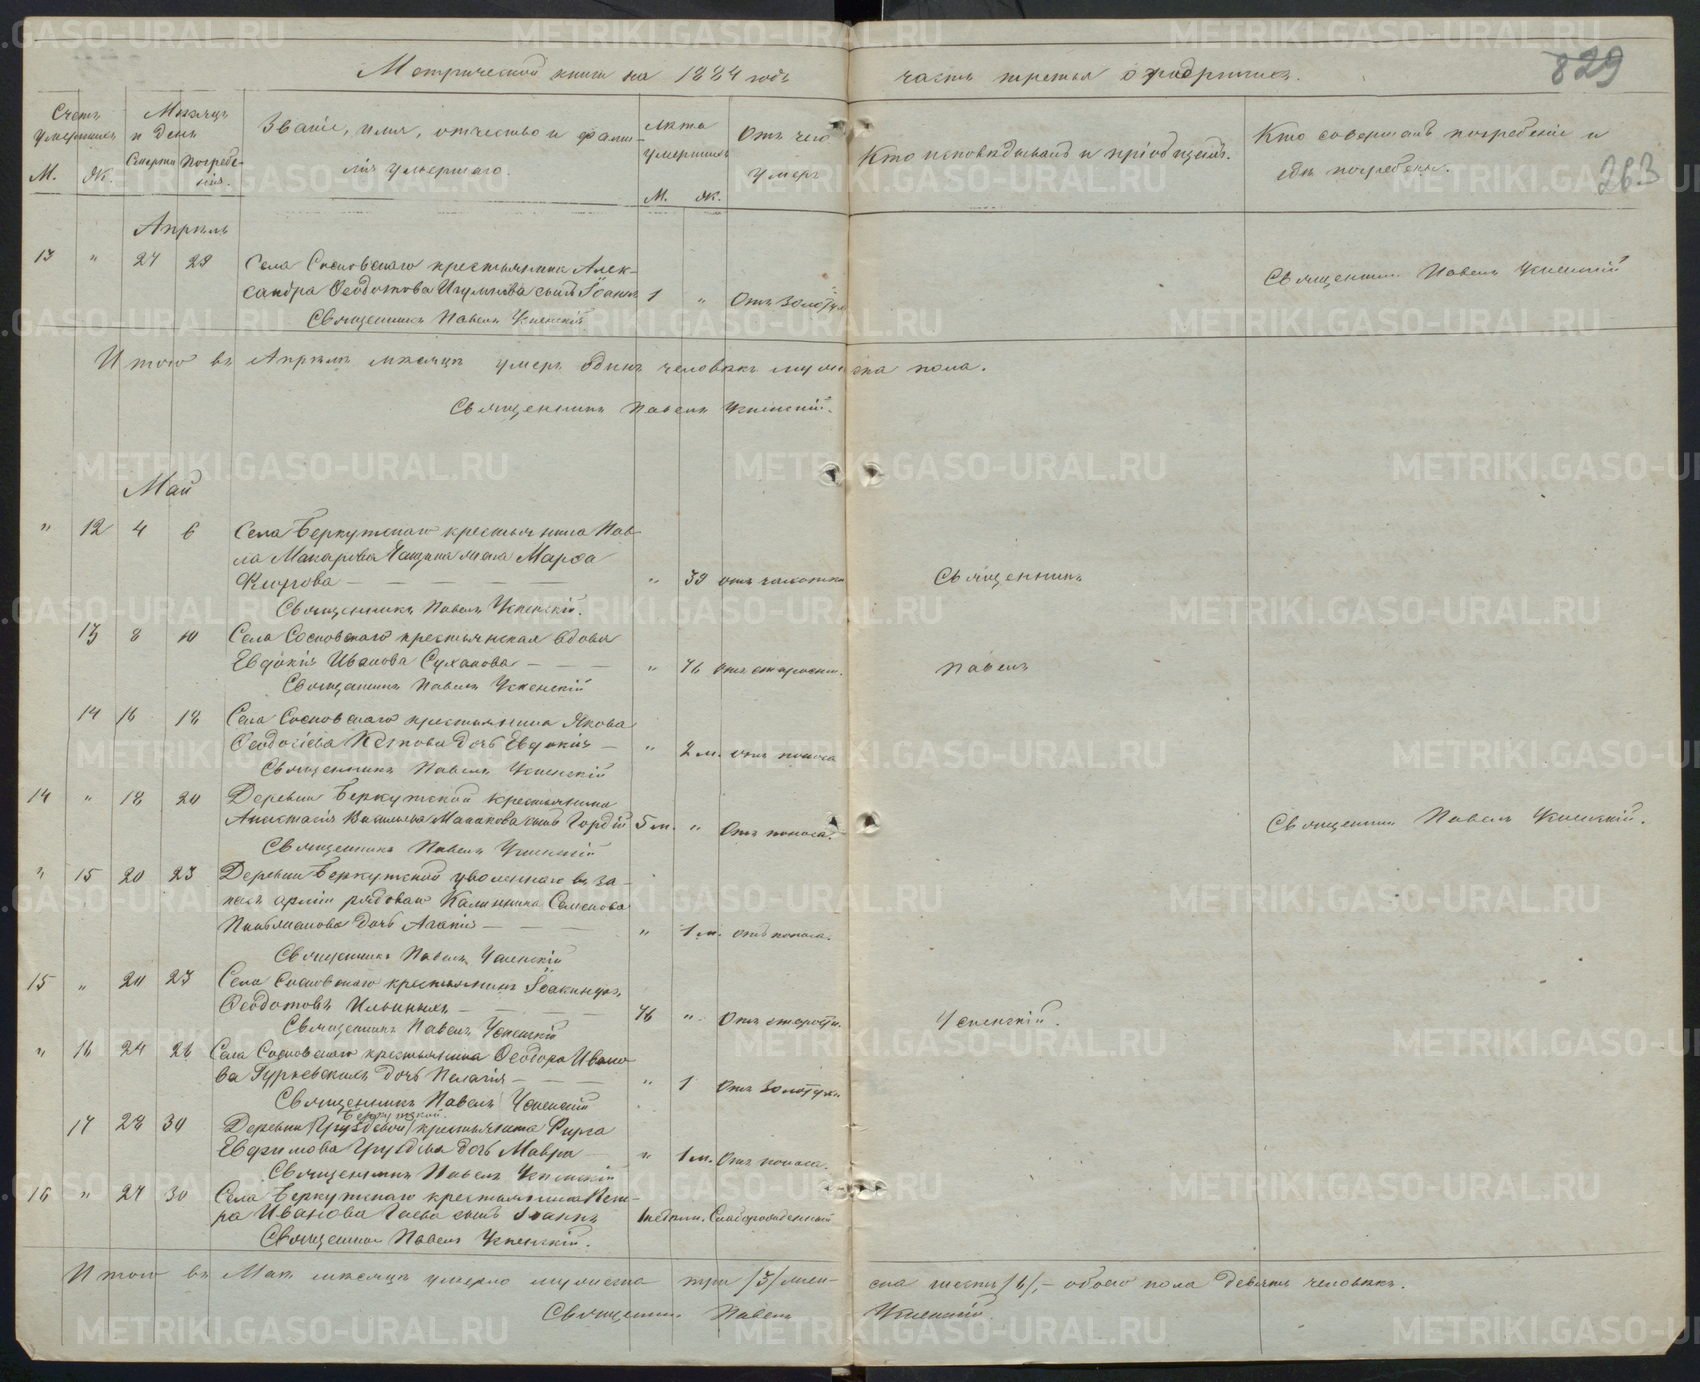 Метрической книги на 1884 годъ часть третья о умершихъ.
829
263
Счетъ умершихъ
М. Ж.
Мѣсяцъ и день
Смерти Погребенія.
Званіе, имя, отчество и фамилія умершаго.
Лѣта умершихъ
М. Ж.
Отъ чего умеръ
Кто исповѣдывалъ и пріобщалъ.
Кто совершалъ погребеніе и гдѣ погребены.
Апрѣль
13 " 27 29 Села Сосновскаго крестьянина Алек-
сандра Ѳеодотова сынъ Іоаннъ 1 " Отъ золотухи
Священникъ Павелъ Успенскій
Священникъ Павелъ Успенскій
Итого въ Апрѣлѣ мѣсяцѣ умеръ одинъ человѣкъ мужеска пола.
Священникъ Павелъ Успенскій.
Май
" 12 4 6 Села Беркутскаго крестьянина Пав-
ла Макарова жена Марѳа
" 39 отъ чахотки
Священникъ Павелъ Успенскій.
Священникъ
13 8 10 Села Сосновскаго крестьянская вдова
Евдокія Иванова Суханова " 76 Отъ старости.
Священникъ Павелъ Успенскій
Павелъ
14 16 18 Села Сосновскаго крестьянина Якова
Ѳеодосіева дочь Евдокія " 2 м. отъ поноса
Священникъ Павелъ Успенскій
14 " 18 20 Деревни Беркутской крестьянина
Анастасія Васильева сынъ Гордій 5 м. " Отъ поноса.
Священникъ Павелъ Успенскій
Священникъ Павелъ Успенскій.
" 15 20 23 Деревни Беркутской уволеннаго въ за-
пасъ арміи рядоваго Калинника Семенова
дочь Агапія " 1 м. отъ поноса.
Священникъ Павелъ Успенскій
15 " 20 23 Села Сосновскаго крестьянинъ Іоакинѳъ
Ѳеодотовъ Ильиныхъ 76 " Отъ старости.
Священникъ Павелъ Успенскій
Успенскій.
" 16 24 26 Села Сосновскаго крестьянина Ѳеодора Ивано-
ва дочь Пелагія " 1 Отъ золотухи
Священникъ Павелъ Успенскій
Беркутской.
17 28 30 Деревни /Груздевой/ крестьянина Фирса
Евфимова Груздева дочь Мавра " 1 м. Отъ поноса.
Священникъ Павелъ Успенскій
16 " 27 30 Села Беркутскаго крестьянина Пет-
ра Иванова Гаева сынъ Іоаннъ 1 недѣли. Слаборожденный
Священникъ Павелъ Успенскій.
Итого въ Маѣ мѣсяцѣ умерло мужеска три /3/ жен-
ска шесть /6/, – обоего пола девять человѣкъ.
Священникъ Павелъ Успенскій.
METRIKI.GASO-URAL.RU